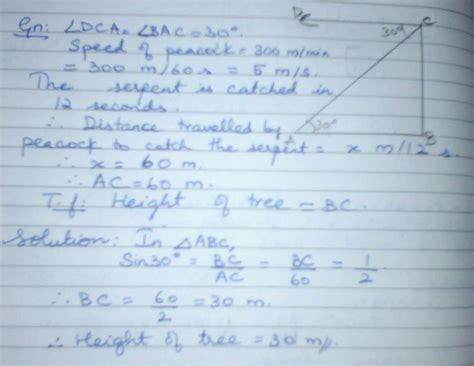 Gn: ∠DCA = ∠BAC = 30°.
Speed of peacock = 300 m/min
= 300 m/60 s = 5 m/s.
The serpent is catched in
12 seconds.
∴ Distance travelled by
peacock to catch the serpent = x m/12 s.
∴ x = 60 m.
∴ AC = 60 m.
T.f: Height of tree = BC.
Solution: In △ABC,
Sin30° = BC/AC = BC/60 = 1/2
∴ BC = 60/2 = 30 m.
∴ Height of tree = 30 m//.
D
C
30°
A
30°
B